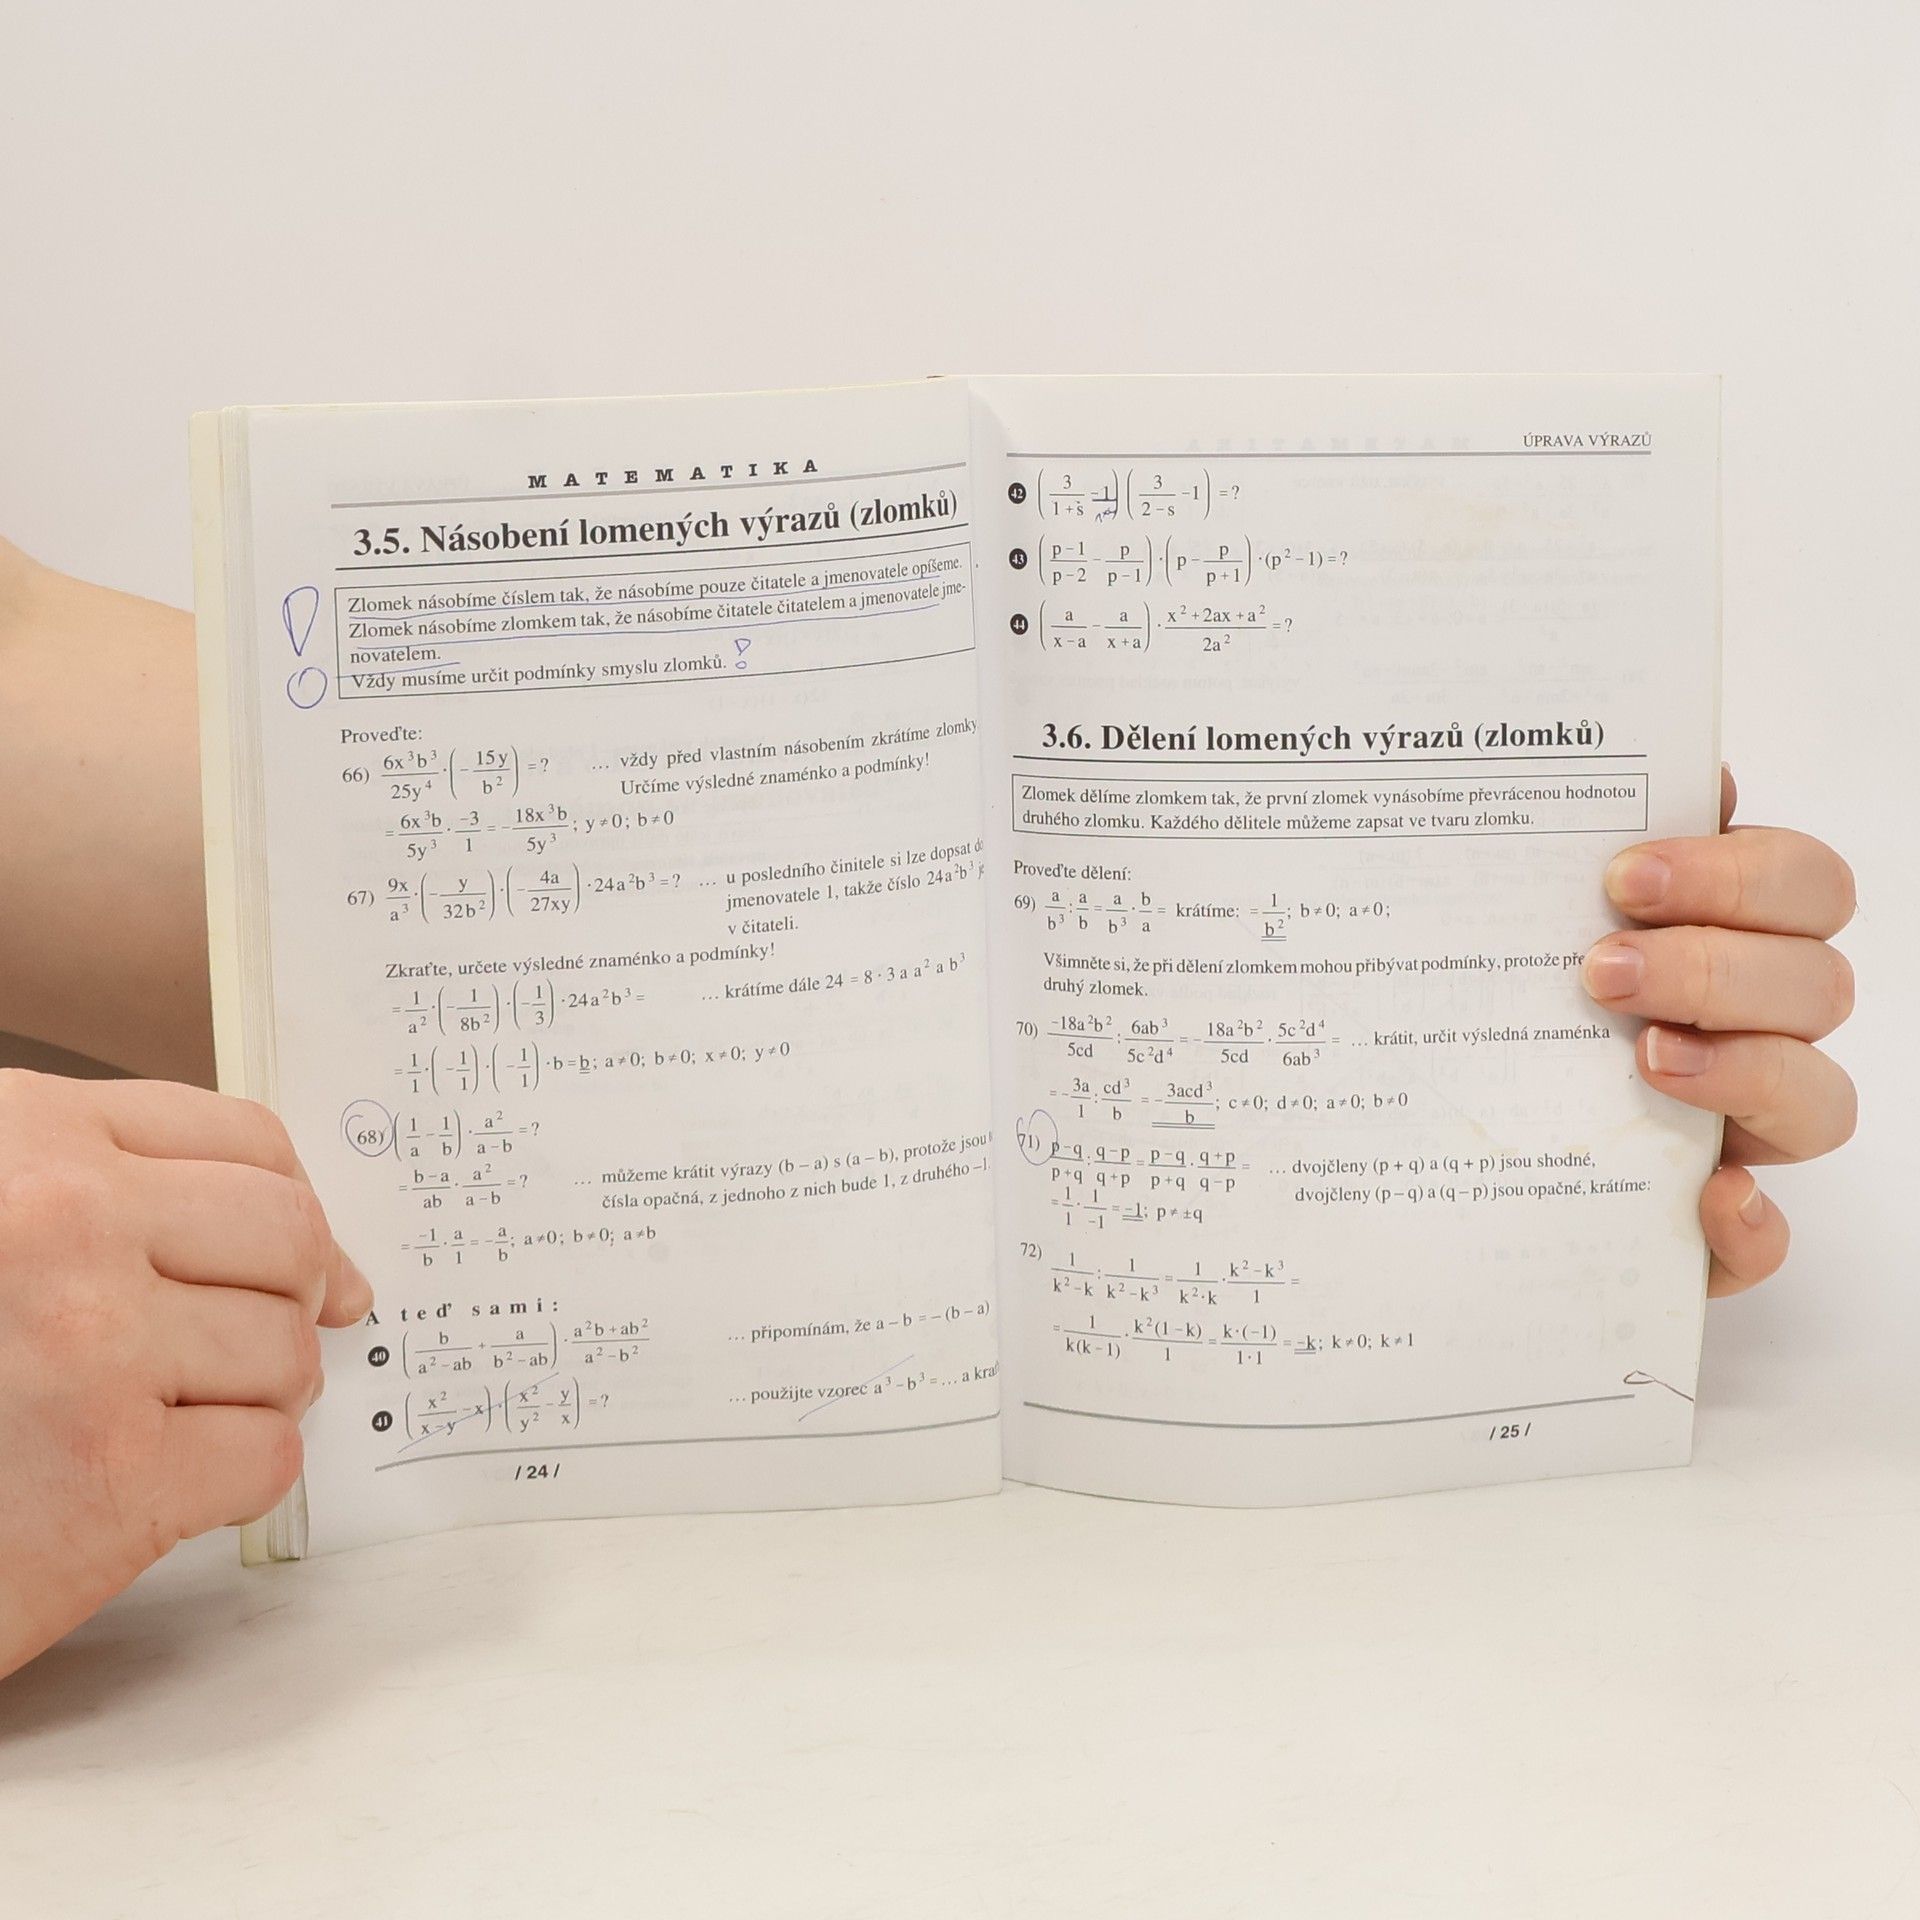 MATEMATIKA
3.5. Násobení lomených výrazů (zlomků)
Zlomek násobíme číslem tak, že násobíme pouze čitatele a jmenovatele opíšeme.
Zlomek násobíme zlomkem tak, že násobíme čitatele čitatelem a jmenovatele jme-
novatelem.
Vždy musíme určit podmínky smyslu zlomků. !
Proveďte:
66) 6x³b³/25y⁴ · (− 15y/b²) = ? … vždy před vlastním násobením zkrátíme zlomky
Určíme výsledné znaménko a podmínky!
= 6x³b/5y³ · −3/1 = − 18x³b/5y³; y ≠ 0; b ≠ 0
67) 9x/a³ · (− y/32b²) · (− 4a/27xy) · 24a²b³ = ? … u posledního činitele si lze dopsat
jmenovatele 1, takže číslo 24a²b³
v čitateli.
Zkraťte, určete výsledné znaménko a podmínky!
= 1/a² · (− 1/8b²) · (− 1/3) · 24a²b³ = … krátíme dále 24 = 8 · 3 a a² a b³
= 1/1 · (− 1/1) · (− 1/1) · b = b; a ≠ 0; b ≠ 0; x ≠ 0; y ≠ 0
68) (1/a − 1/b) · a²/a−b = ?
= b−a/ab · a²/a−b = ? … můžeme krátit výrazy (b – a) s (a – b), protože jsou
čísla opačná, z jednoho z nich bude 1, z druhého –1.
= −1/b · a/1 = − a/b; a ≠ 0; b ≠ 0; a ≠ b
A teď sami:
40 (b/a²−ab + a/b²−ab) · a²b+ab²/a²−b² … připomínám, že a – b = – (b – a)
41 (x²/x−y − x) · (x²/y² − y/x) = ? … použijte vzorec a³ – b³ = … a
/ 24 /
ÚPRAVA VÝRAZŮ
42 (3/1+s − 1) (3/2−s − 1) = ?
43 (p−1/p−2 − p/p−1) · (p − p/p+1) · (p² − 1) = ?
44 (a/x−a − a/x+a) · x²+2ax+a²/2a² = ?
3.6. Dělení lomených výrazů (zlomků)
Zlomek dělíme zlomkem tak, že první zlomek vynásobíme převrácenou hodnotou
druhého zlomku. Každého dělitele můžeme zapsat ve tvaru zlomku.
Proveďte dělení:
69) a/b³ : a/b = a/b³ · b/a = krátíme: = 1/b²; b ≠ 0; a ≠ 0;
Všimněte si, že při dělení zlomkem mohou přibývat podmínky, protože
druhý zlomek.
70) −18a²b²/5cd : 6ab³/5c²d⁴ = − 18a²b²/5cd · 5c²d⁴/6ab³ = … krátit, určit výsledná znaménka
= − 3a/1 : cd³/b = − 3acd³/b; c ≠ 0; d ≠ 0; a ≠ 0; b ≠ 0
71) p−q/p+q : q−p/q+p = p−q/p+q · q+p/q−p = … dvojčleny (p + q) a (q + p) jsou shodné,
dvojčleny (p – q) a (q – p) jsou opačné, krátíme:
= 1/1 · 1/−1 = −1; p ≠ ±q
72) 1/k²−k : 1/k²−k³ = 1/k²·k · k²−k³/1 =
= 1/k(k−1) · k²(1−k)/1 = k·(−1)/1·1 = −k; k ≠ 0; k ≠ 1
/ 25 /